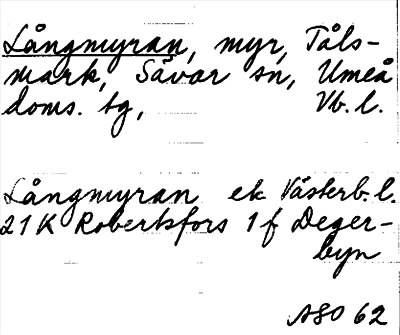 Långmyran, myr, Tåls-
mark, Sävar sn, Umeå
doms. tg, Vb. l.
Långmyran ek Västerb. l.
21K Robertsfors 1f Deger-
byn
ASO 62